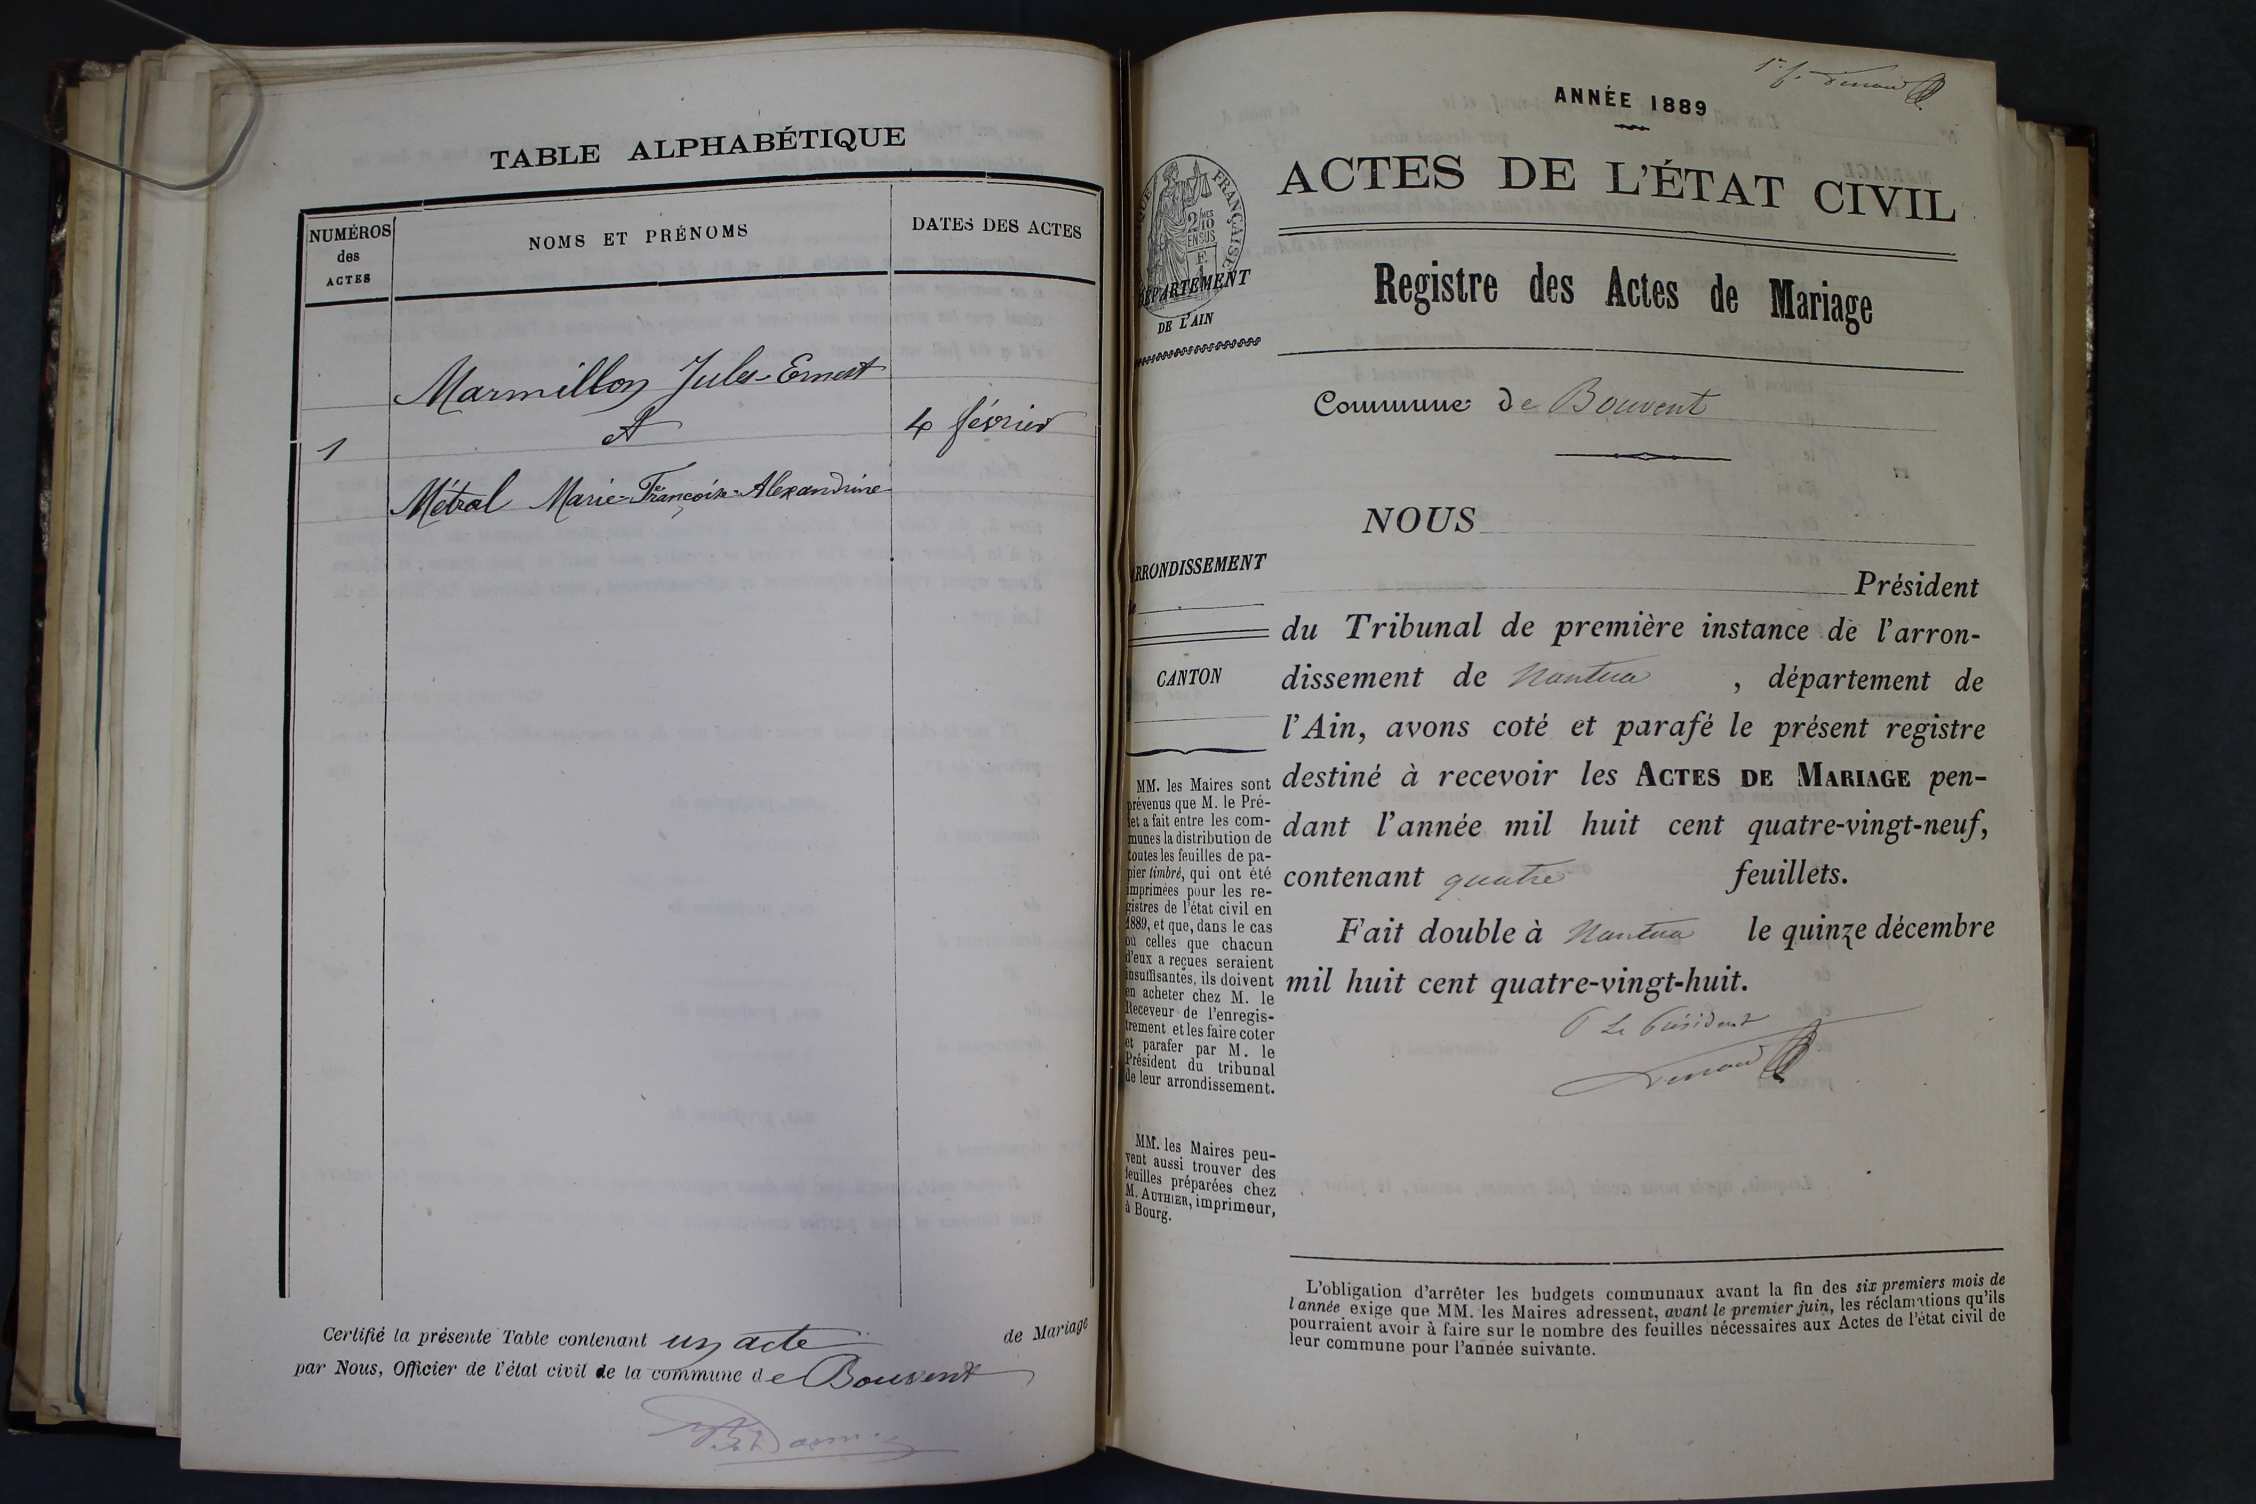 TABLE ALPHABÉTIQUE
NUMÉROS
des
ACTES
NOMS ET PRÉNOMS
DATES DES ACTES
Marmillon Jules-Ernest
1
Et
4 février
Métral Marie-Françoise-Alexandrine
Certifié la présente Table contenant un acte de Mariage
par Nous, Officier de l'état civil de la commune de Bouvent
ANNÉE 1889
ACTES DE L'ÉTAT CIVIL
FRANÇAISE
2/10
EN SUS
DÉPARTEMENT
DE L'AIN
Registre des Actes de Mariage
Commune de Bouvent
NOUS
Président
du Tribunal de première instance de l'arron-
dissement de Nantua , département de
l'Ain, avons coté et parafé le présent registre
destiné à recevoir les ACTES DE MARIAGE pen-
dant l'année mil huit cent quatre-vingt-neuf,
contenant quatre feuillets.
Fait double à Nantua le quinze décembre
mil huit cent quatre-vingt-huit.
P Le Président
RRONDISSEMENT
CANTON
MM. les Maires sont
prévenus que M. le Pré-
fet a fait entre les com-
munes la distribution de
toutes les feuilles de pa-
pier timbré, qui ont été
imprimées pour les re-
gistres de l'état civil en
1889, et que, dans le cas
où celles que chacun
d'eux a reçues seraient
insuffisantes, ils doivent
en acheter chez M. le
Receveur de l'enregis-
trement et les faire coter
et parafer par M. le
Président du tribunal
de leur arrondissement.
MM. les Maires peu-
vent aussi trouver des
feuilles préparées chez
M. AUTHIER, imprimeur,
à Bourg.
L'obligation d'arrêter les budgets communaux avant la fin des six premiers mois de
l'année exige que MM. les Maires adressent, avant le premier juin, les réclamations qu'ils
pourraient avoir à faire sur le nombre des feuilles nécessaires aux Actes de l'état civil de
leur commune pour l'année suivante.